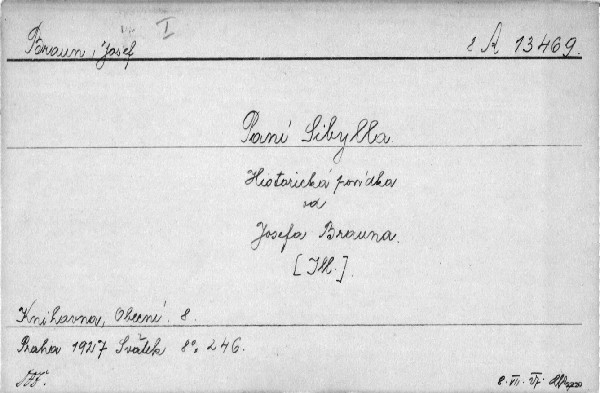 I
Braun, Josef
2 A 13469.
Paní Sibylla.
Historická povídka
od
Josefa Brauna.
[Ill.].
Knihovna, Obecní. 8.
Praha 1927 Svátek 8°. 246.
8. VII. 37.